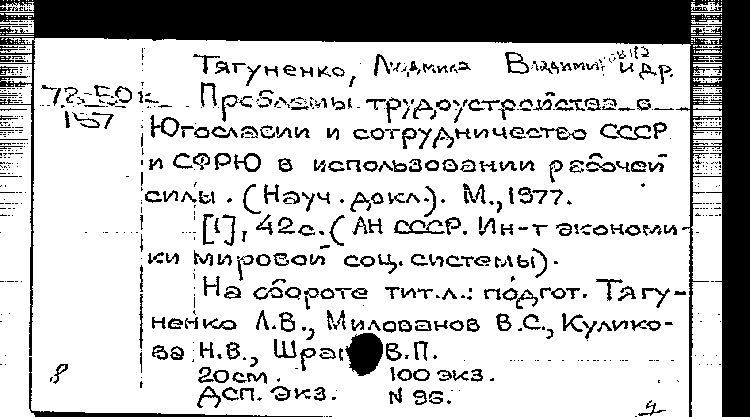 Тягуненко, Людмила Владимировна и др.
78-50к
157
Проблемы трудоустройства в
Югославии и сотрудничество СССР
и СФРЮ в использовании рабочей
силы. (Науч. докл.). М., 1977.
[1], 42с. (АН СССР. Ин-т экономи-
ки мировой соц. системы).
На обороте тит.л.: подгот. Тягу-
ненко Л.В., Милованов В.С., Кулико-
ва Н.В., В.П.
20см. 100 экз.
ДСП. Экз. N 96.
8